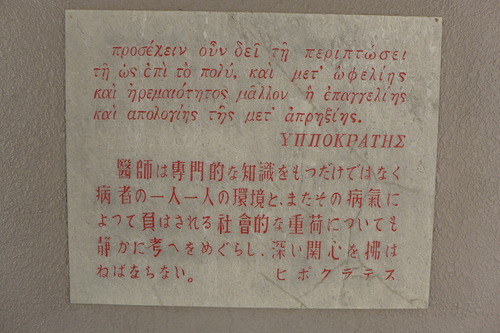 προσέχειν οὖν δεῖ τῇ περιπτώσει
τῇ ὡς ἐπὶ τὸ πολύ, καὶ μετ' ὠφελίης
καὶ ἠρεμαιότητος μᾶλλον ἢ ἐπαγγελίης
καὶ απολογίης τῆς μετ' ἀπρηξίης.
ΥΠΠΟΚΡΑΤΗΣ
醫師は専門的な知識をもつだけではなく
病者の一人一人の環境と、またその病氣に
よつて負はされる社會的な重荷についても
静かに考へをめぐらし、深い関心を拂は
ねばならない。 ヒポクラテス